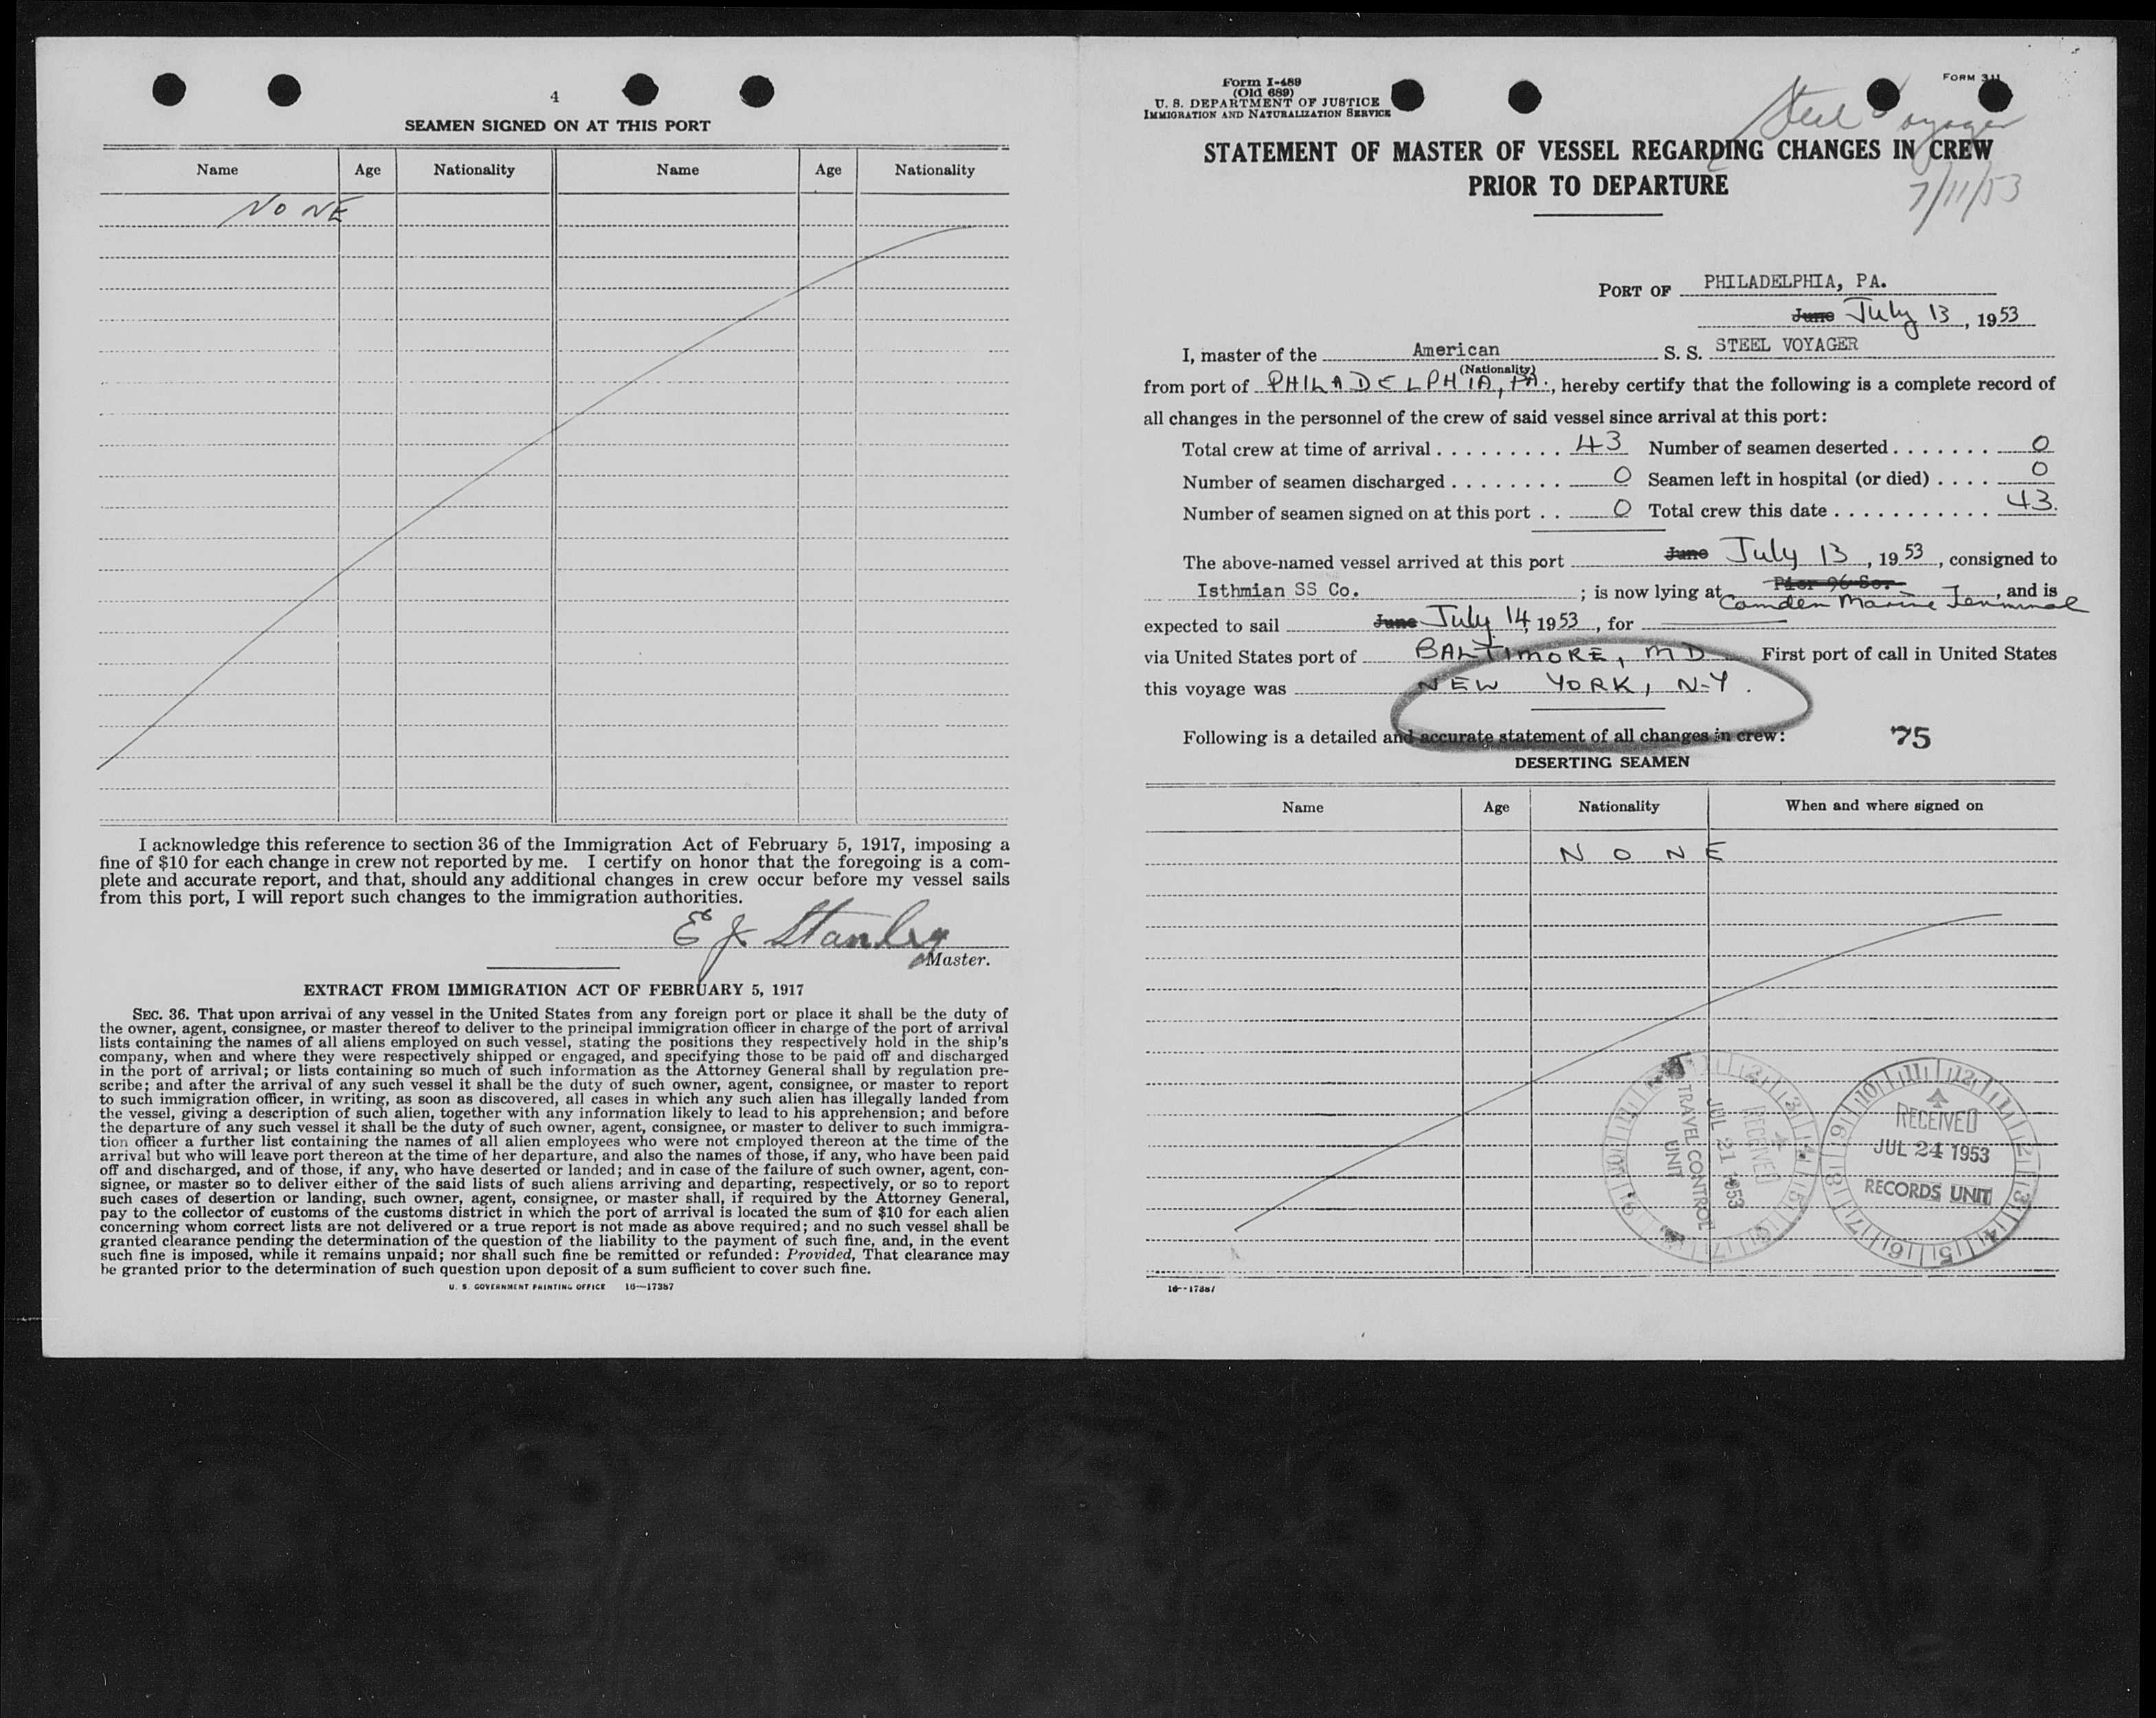 4
SEAMEN SIGNED ON AT THIS PORT
Name Age Nationality Name Age Nationality
NONE
I acknowledge this reference to section 36 of the Immigration Act of February 5, 1917, imposing a
fine of $10 for each change in crew not reported by me. I certify on honor that the foregoing is a com-
plete and accurate report, and that, should any additional changes in crew occur before my vessel sails
from this port, I will report such changes to the immigration authorities.
E J Stanley
Master.
EXTRACT FROM IMMIGRATION ACT OF FEBRUARY 5, 1917
SEC. 36. That upon arrival of any vessel in the United States from any foreign port or place it shall be the duty of
the owner, agent, consignee, or master thereof to deliver to the principal immigration officer in charge of the port of arrival
lists containing the names of all aliens employed on such vessel, stating the positions they respectively hold in the ship's
company, when and where they were respectively shipped or engaged, and specifying those to be paid off and discharged
in the port of arrival; or lists containing so much of such information as the Attorney General shall by regulation pre-
scribe; and after the arrival of any such vessel it shall be the duty of such owner, agent, consignee, or master to report
to such immigration officer, in writing, as soon as discovered, all cases in which any such alien has illegally landed from
the vessel, giving a description of such alien, together with any information likely to lead to his apprehension; and before
the departure of any such vessel it shall be the duty of such owner, agent, consignee, or master to deliver to such immigra-
tion officer a further list containing the names of all alien employees who were not employed thereon at the time of the
arrival but who will leave port thereon at the time of her departure, and also the names of those, if any, who have been paid
off and discharged, and of those, if any, who have deserted or landed; and in case of the failure of such owner, agent, con-
signee, or master so to deliver either of the said lists of such aliens arriving and departing, respectively, or so to report
such cases of desertion or landing, such owner, agent, consignee, or master shall, if required by the Attorney General,
pay to the collector of customs of the customs district in which the port of arrival is located the sum of $10 for each alien
concerning whom correct lists are not delivered or a true report is not made as above required; and no such vessel shall be
granted clearance pending the determination of the question of the liability to the payment of such fine, and, in the event
such fine is imposed, while it remains unpaid; nor shall such fine be remitted or refunded: Provided, That clearance may
be granted prior to the determination of such question upon deposit of a sum sufficient to cover such fine.
U. S. GOVERNMENT PRINTING OFFICE 16—17387
Form I-489
(Old 689)
U. S. DEPARTMENT OF JUSTICE
IMMIGRATION AND NATURALIZATION SERVICE
FORM 311
Steel Voyager
STATEMENT OF MASTER OF VESSEL REGARDING CHANGES IN CREW
PRIOR TO DEPARTURE
7/11/53
PORT OF PHILADELPHIA, PA.
June July 13, 1953
I, master of the American S. S. STEEL VOYAGER
(Nationality)
from port of PHILADELPHIA, PA., hereby certify that the following is a complete record of
all changes in the personnel of the crew of said vessel since arrival at this port:
Total crew at time of arrival . . . . . . . . . 43 Number of seamen deserted . . . . . . . 0
Number of seamen discharged . . . . . . . . 0 Seamen left in hospital (or died) . . . . 0
Number of seamen signed on at this port . . 0 Total crew this date . . . . . . . . . . . 43.
The above-named vessel arrived at this port June July 13, 1953, consigned to
Isthmian SS Co. ; is now lying at Pier 96 So. Camden Marine Terminal, and is
expected to sail June July 14, 1953, for
via United States port of BALTIMORE, MD First port of call in United States
this voyage was NEW YORK, N.Y.
Following is a detailed and accurate statement of all changes in crew: 75
DESERTING SEAMEN
Name Age Nationality When and where signed on
NONE
RECEIVED
JUL 21 1953
TRAVEL CONTROL
UNIT
RECEIVED
JUL 24 1953
RECORDS UNIT
16—17387